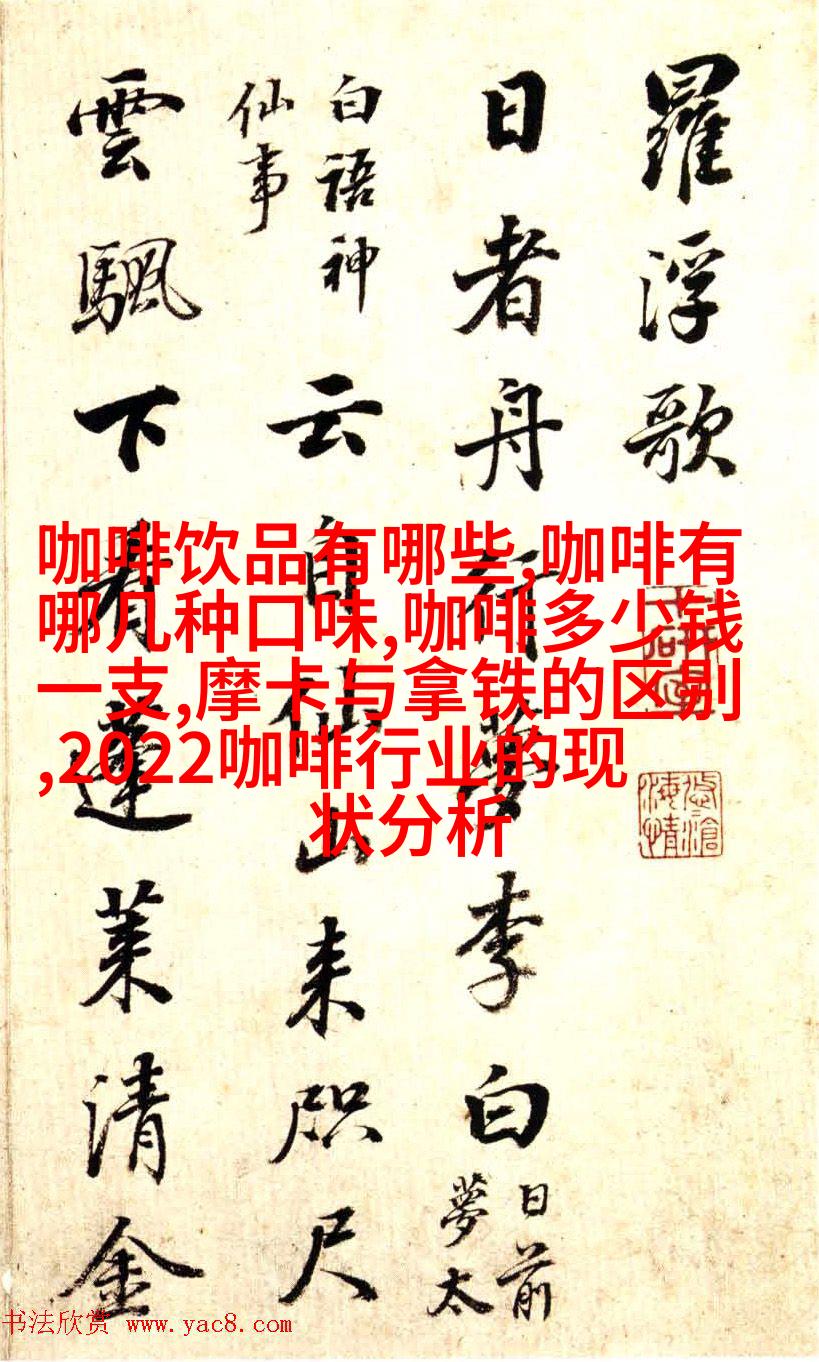 羅浮歌
日者舟行夢李白
日前
夢太
白語神
仙事
云自仙山来咫尺
雲颿下看蓬莱清金
咖啡饮品有哪些,咖啡有
哪几种口味,咖啡多少钱
一支,摩卡与拿铁的区别
,2022咖啡行业的现
状分析
书法欣赏 www.yac8.com